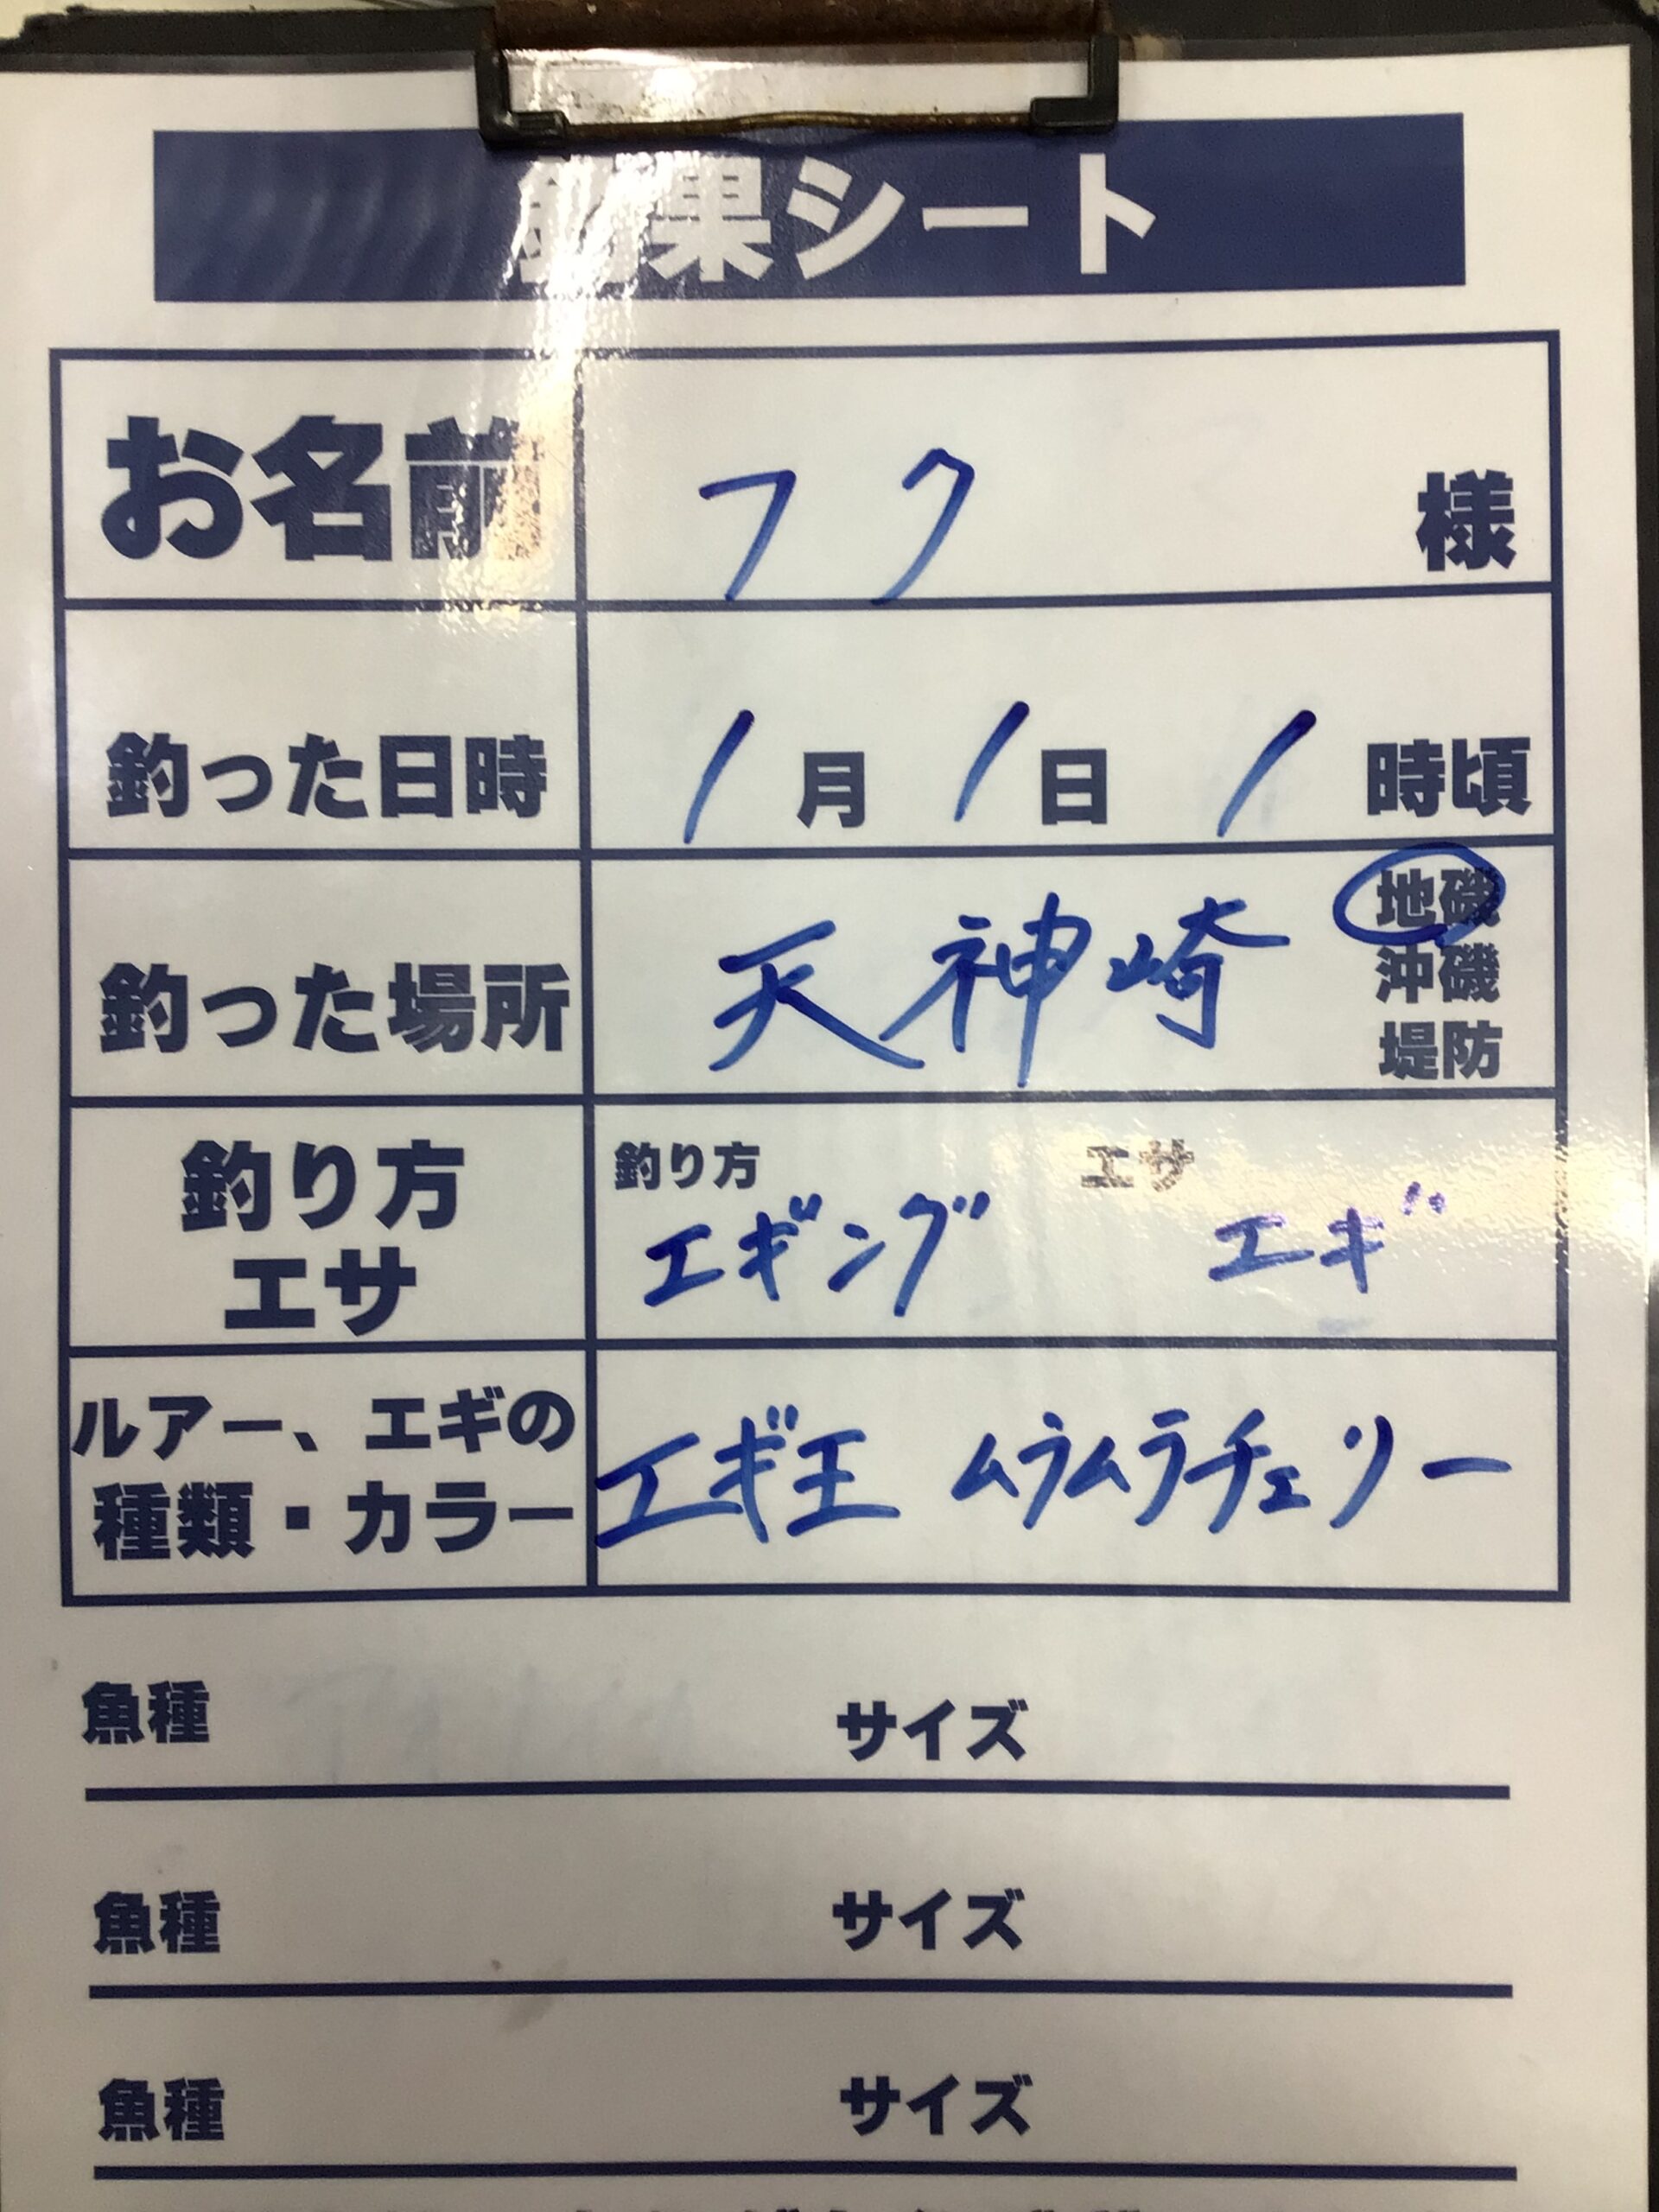 釣果シート
お名前 フク 様
釣った日時 1月1日 1時頃
釣った場所 天神崎 地磯
沖磯
堤防
釣り方 エサ
釣り方 エギング
エサ エギ
ルアー、エギの
種類・カラー
エギ王 ムラムラチェリー
魚種 サイズ
魚種 サイズ
魚種 サイズ